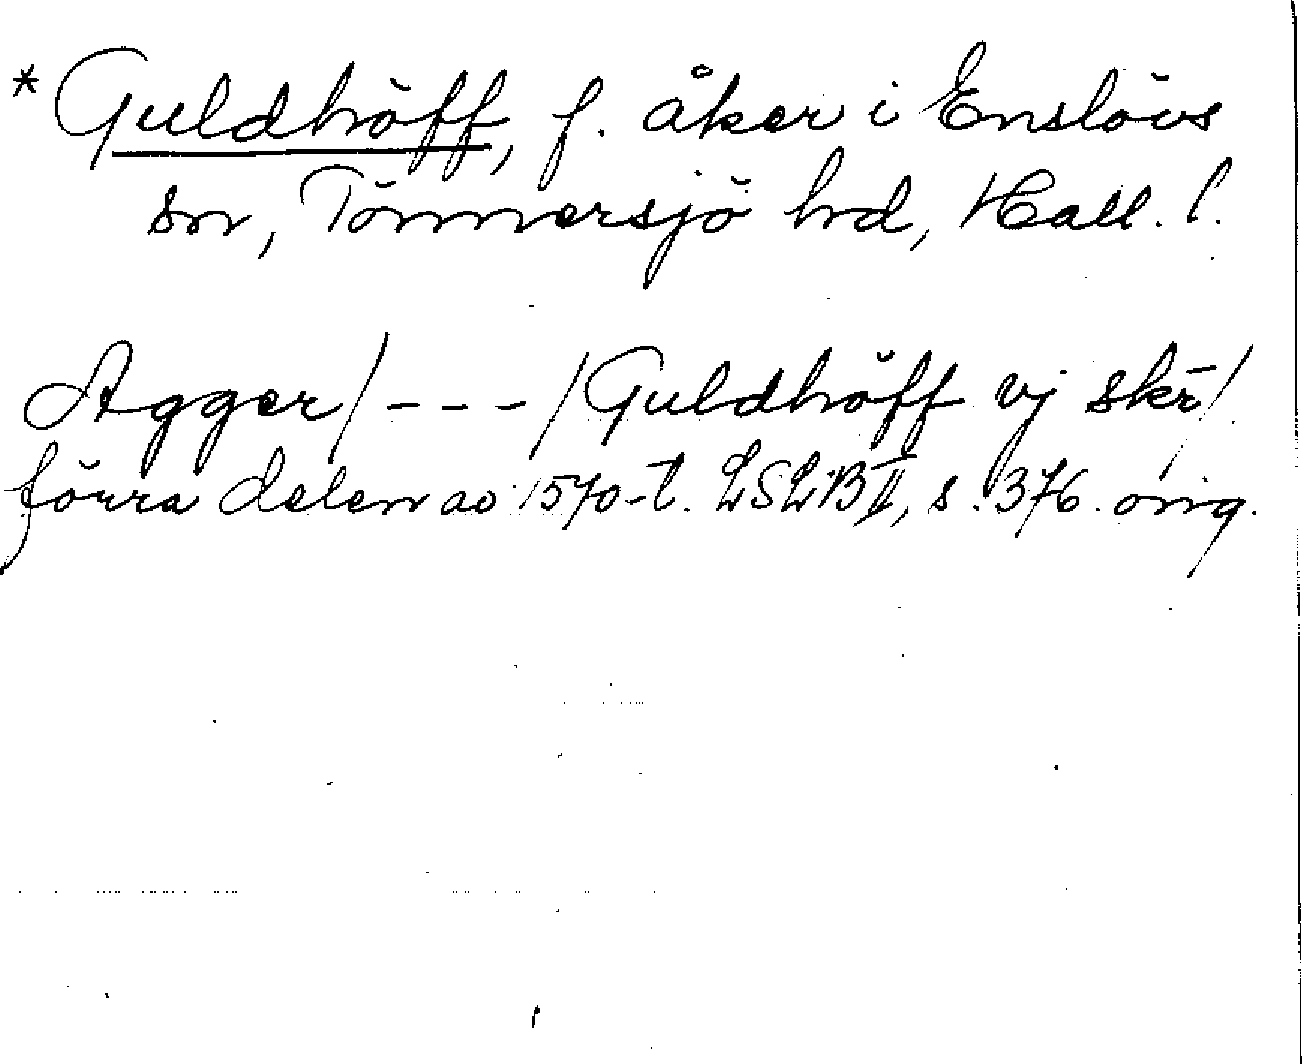 * Guldhöff, f. åker i Enslövs
sn, Tönnersjö hd, Hall. l.
Agger/---/Guldhöff vj skr/
förra delen av 1570-t. LSLB II, s. 376. orig.